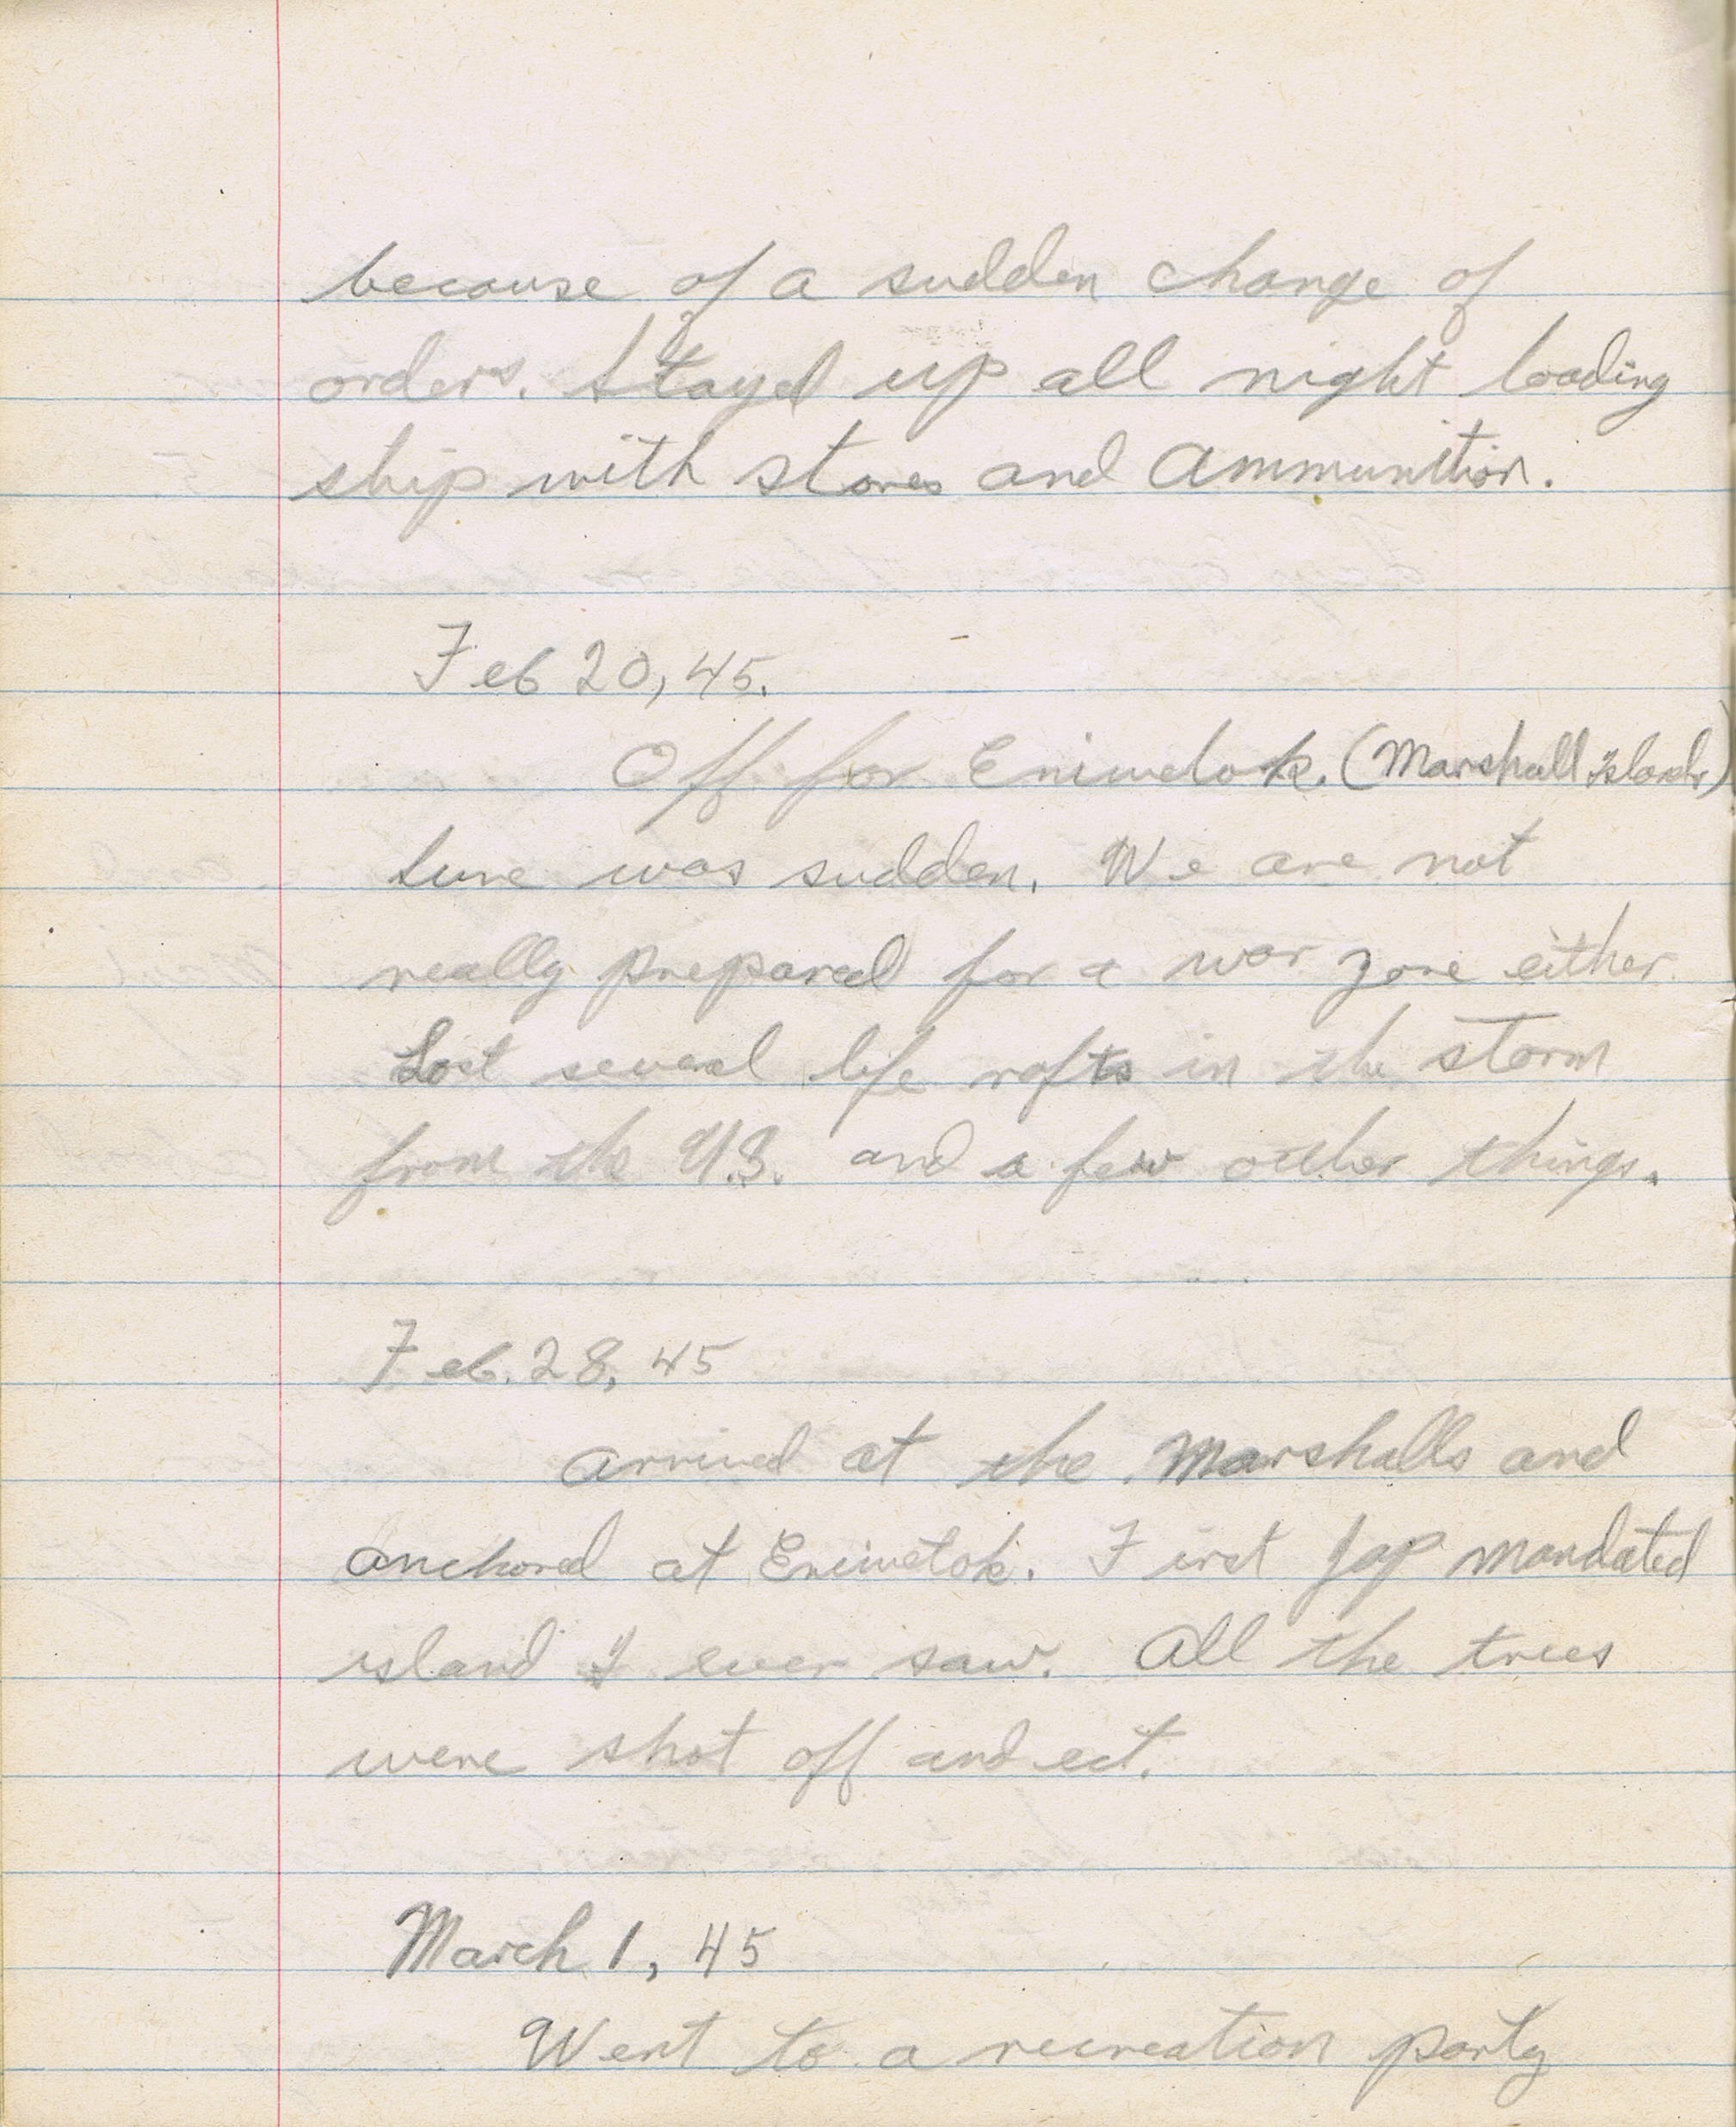 because of a sudden change of
orders. Stayed up all night loading
ship with stores and ammunition.
Feb 20, 45.
Off for Eniwelok. (Marshall Islands)
Sure was sudden. We are not
really prepared for a war zone either.
Lost several life rafts in the storm
from the U.S. and a few other things.
Feb. 28, 45
arrived at the Marshalls and
anchored at Eniwetok. First Jap mandated
island I ever saw. All the trees
were shot off and ect.
March 1, 45
Went to a recreation party